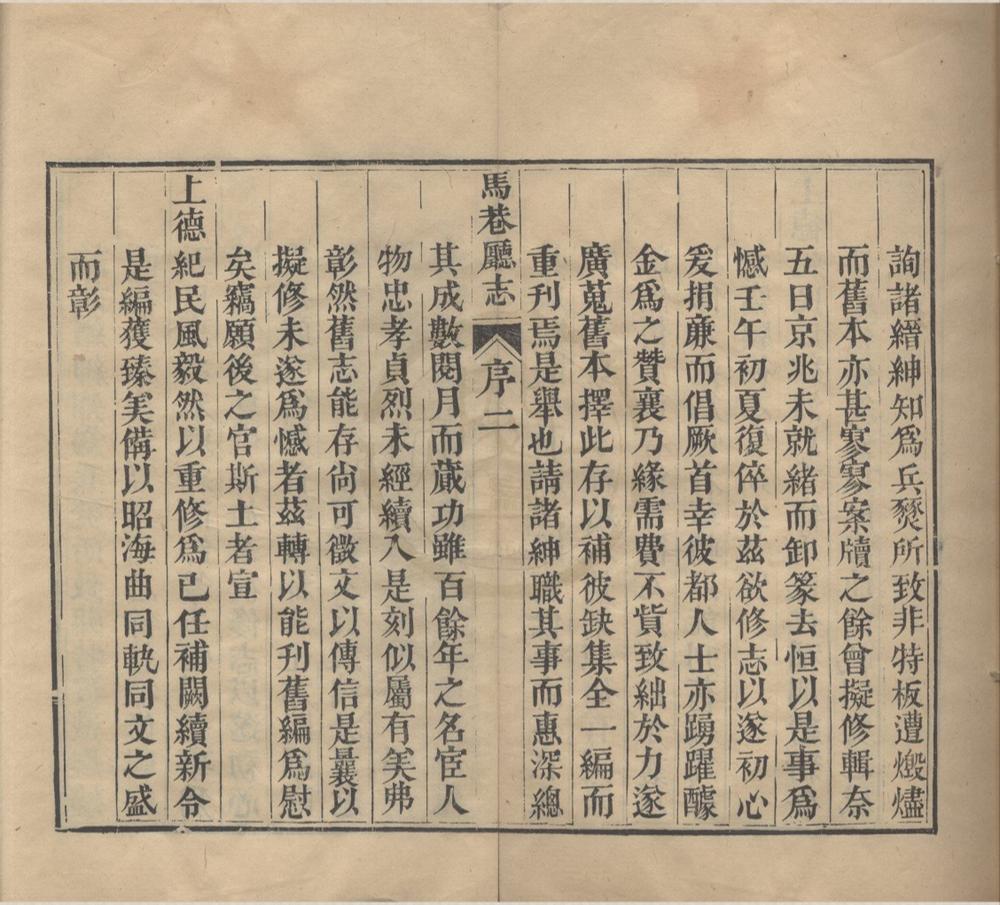 詢諸縉紳知爲兵燹所致非特板遭燬燼
而舊本亦甚寥寥案牘之餘曾擬修輯奈
五日京兆未就緒而卸篆去恒以是事爲
憾壬午初夏復倅於茲欲修志以遂初心
爰捐亷而倡厥首幸彼都人士亦踴躍醵
金爲之贊襄乃緣需費不貲致絀於力遂
廣蒐舊本擇此存以補彼缺集全一編而
重刊焉是舉也請諸紳職其事而惠深總
馬巷廳志 序 二
其成數閱月而蕆功雖百餘年之名宦人
物忠孝貞烈未經續入是刻似屬有美弗
彰然舊志能存尙可徵文以傳信是曩以
擬修未遂爲憾者茲轉以能刊舊編爲慰
矣竊願後之官斯土者宣
上德紀民風毅然以重修爲己任補闕續新令
是編獲臻美備以昭海曲同軌同文之盛
而彰